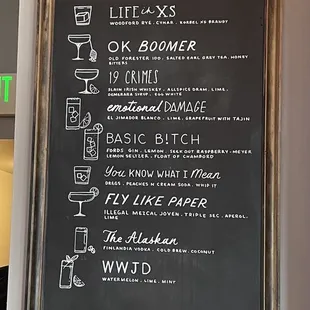 LIFE in XS
WOODFORD RYE . CYNAR . KORBEL NV BRANDY
OK BOOMER
OLD FORESTER 100 . SALTED EARL GREY TEA . HONEY
BITTERS
19 CRIMES
SLAIN IRISH WHISKEY . ALLSPICE DRAM . LIME .
DEMERARA SYRUP . EGG WHITE
emotional DAMAGE
EL JIMADOR BLANCO . LIME . GRAPEFRUIT WITH TAJIN
BASIC B!TCH
FORDS GIN . LEMON . RASPBERRY - MEYER
LEMON SELTZER . FLOAT OF CHAMBORD
YOU KNOW WHAT I Mean
DREGS . PEACHES N CREAM SODA . WHIP IT
FLY LIKE PAPER
ILLEGAL MEZCAL JOVEN . TRIPLE SEC . APEROL .
LIME
The Alaskan
FINLANDIA VODKA . COLD BREW . COCONUT
WWJD
WATERMELON . LIME . MINT